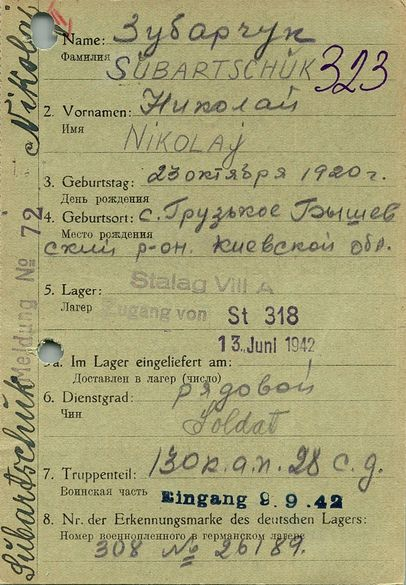 Nikolaj
Name: Зубарчук
Фамилия
SÜBARTSCHÜK 323
2. Vornamen: Николай
Имя
NIKOLAJ
3. Geburtstag: 23 октября 1920 г.
День рождения
4. Geburtsort: с. Грузькое Бышев
Место рождения
ский р-он. Киевской обл.
Meldung № 72
5. Lager: Stalag VIII A
Лагер Zugang von St 318
13. Juni 1942
a. Im Lager eingeliefert am:
Доставлен в лагер (число)
6. Dienstgrad: рядовой
Чин Soldat
Sübartschük
7. Truppenteil: 130 к.а.п. 28 с.д.
Воинская часть Eingang 9.9.42
8. Nr. der Erkennungsmarke des deutschen Lagers:
Номер военнопленного в германском лагере
308 № 26189.